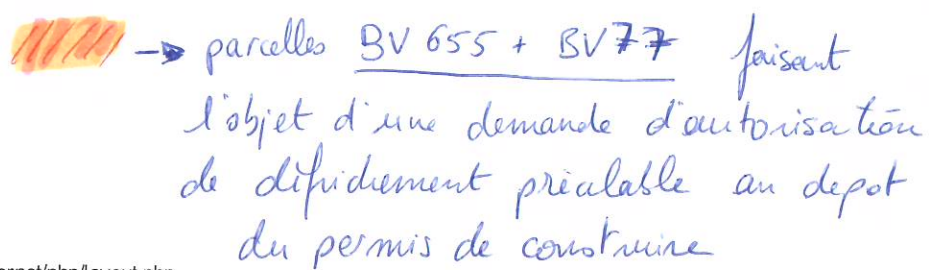 → parcelles BV 655 + BV 77 faisant
l'objet d'une demande d'autorisation
de défrichement préalable au depot
du permis de construire